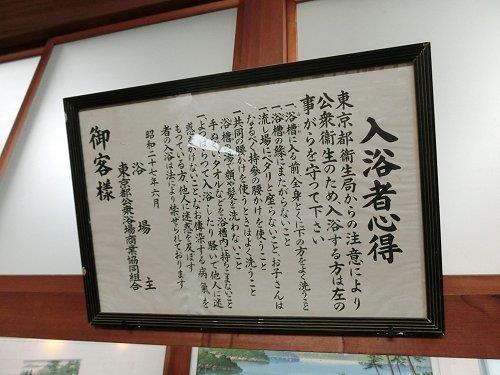 入浴者心得
東京都衛生局からの注意により
公衆衛生のため入浴する方は左の
事がらを守って下さい
一、浴槽に入る前、全身とくに下の方をよく洗うこと
一、浴槽の縁にまたがらないこと
一、流し場にペタリと座らないこと、お子さんは
なるべく持参の腰かけを使うこと
一、共同の腰かけを使うときはよく洗うこと
一、浴槽内で顔や髪を洗わないこと
手ぬぐい、タオルなどを浴槽内に持ちこまないこと
一、よっぱらって入浴したり騒いで他人に迷
惑をかけないこと、なお傳染する病氣を
もっている方、他人に迷惑を及ぼす
者の入浴は法により禁ぜられております
昭和二十七年六月
浴場主
東京都公衆浴場商業協同組合
御客様